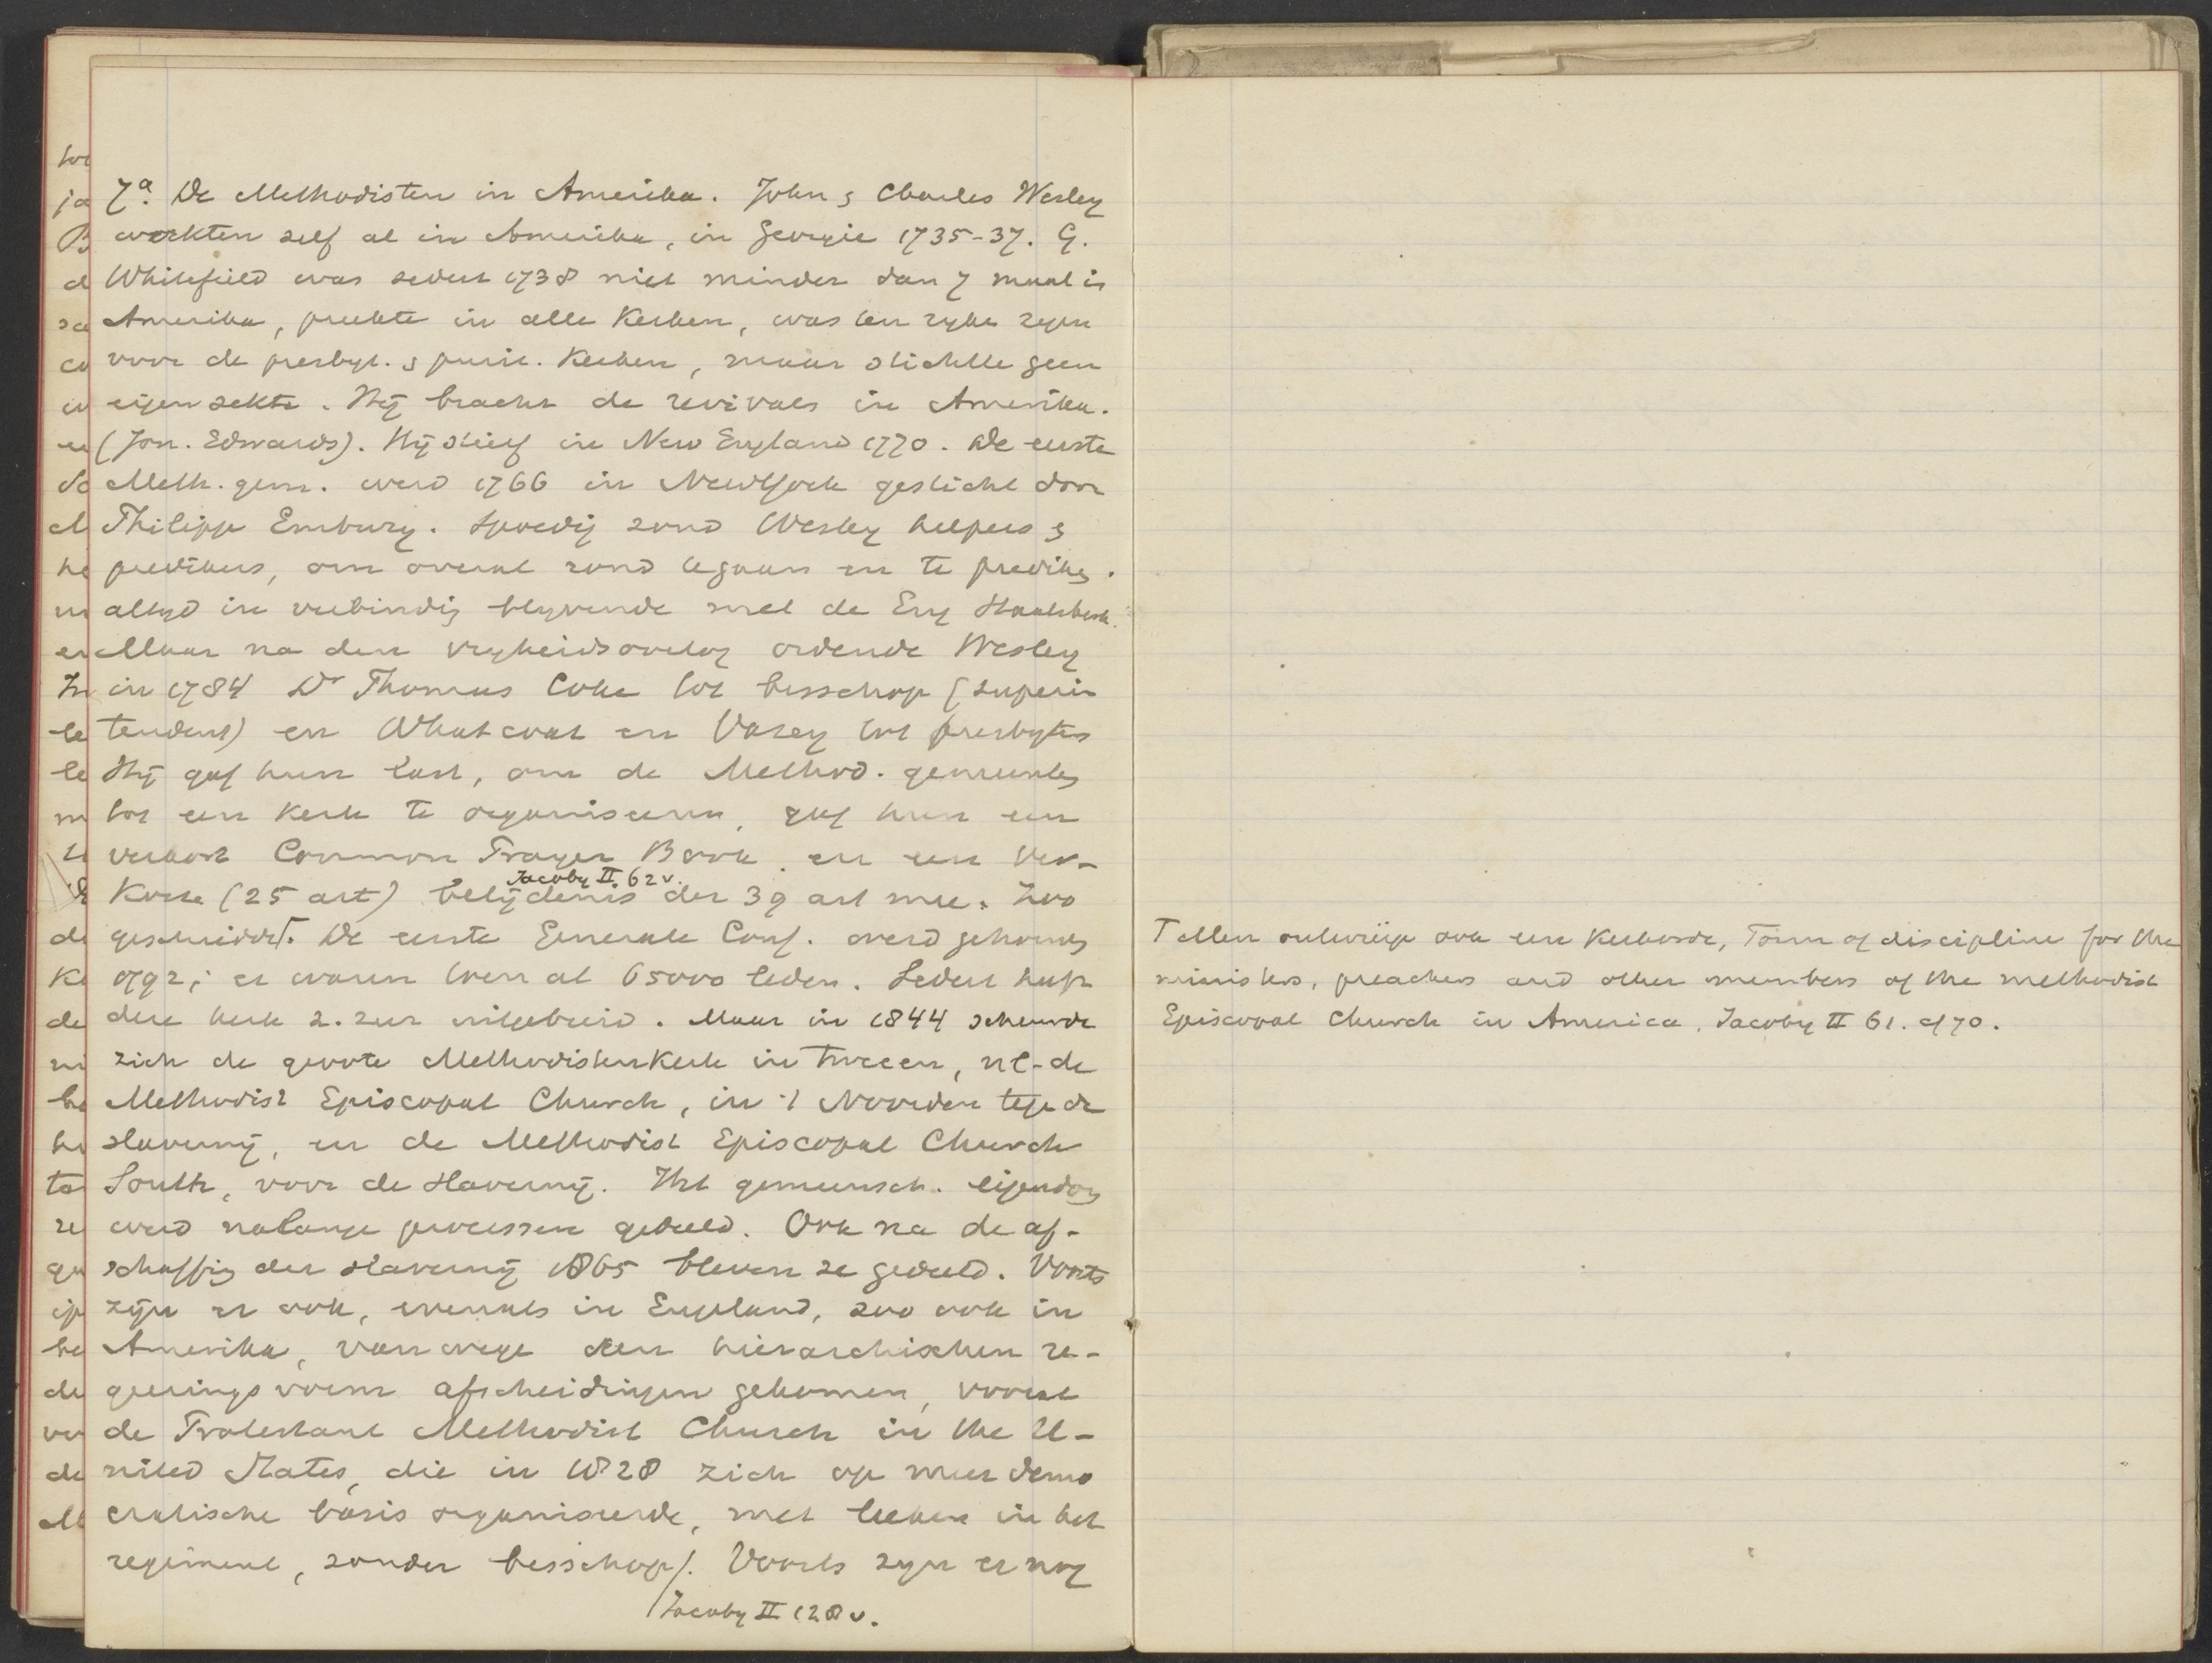 7a. De Methodisten in Amerika. John & Charles Wesley
werkten zelf al in Amerika, in Georgie 1735-37. G.
Whitefield was sedert 1738 niet minder dan 7 maal in
Amerika, preekte in alle Kerken, was een ryke zegen
voor de presbyt. & purit. Kerken, maar stichtte geen
eigen sekte. Hij bracht de revivals in Amerika.
(Jon. Edwards). Hij stierf in New England 1770. De eerste
Meth. gem. werd 1766 in NewYork gesticht door
Philipp Embury. Spoedig zond Wesley helpers &
predikers, om overal rond te gaan en te prediken.
altyd in verbinding blyvende met de Eng Staatskerk.
Maar na den vryheidsoorlog ordende Wesley
in 1784 Dr Thomas Coke tot bisschop (superin
tendent) en Whatcoat en Vasey tot presbyters
Hij gaf hun last, om de Method. gemeentes
tot een Kerk te organiseeren, gaf hun een
verkort Common Prayer Book en een ver-
Jacoby II 62v.
Korte (25 art) belijdenis der 39 art mee. Zoo
geschiedde⌈. De eerste Generale Conf. werd gehouden
1792; er waren toen al 65000 leden. Sedert heeft
deze kerk z. zeer uitgebreid. Maar in 1844 scheurde
zich de groote Methodistenkerk in tweeen, nl-de
Methodist Episcopal Church, in 't Noorden tege de
slaverny, en de Methodist Episcopal Church
South, voor de slaverny. Het gemeensch. eigendom
werd na lange processen gedeeld. Ook na de af-
schaffing der slaverny 1865 bleven ze gedeeld. Voorts
zijn er ook, evenals in Engeland, zoo ook in
Amerika, vanwege den hierarchischen re-
geeringsvorm afscheidingen gekomen, vooral
de Protestant Methodist Church in the U-
nited States, die in 1828 zich op meer demo
cratische basis organiseerde, met leeken in het
regiment, zonder bisschop/. Voorts zyn er nog
/Jacoby II 128v.
⌈ Allen ontwierp ook een Kerkorde, Form of discipline for the
ministers, preachers and other members of the methodist
Episcopal Church in America. Jacoby II 61. 70.